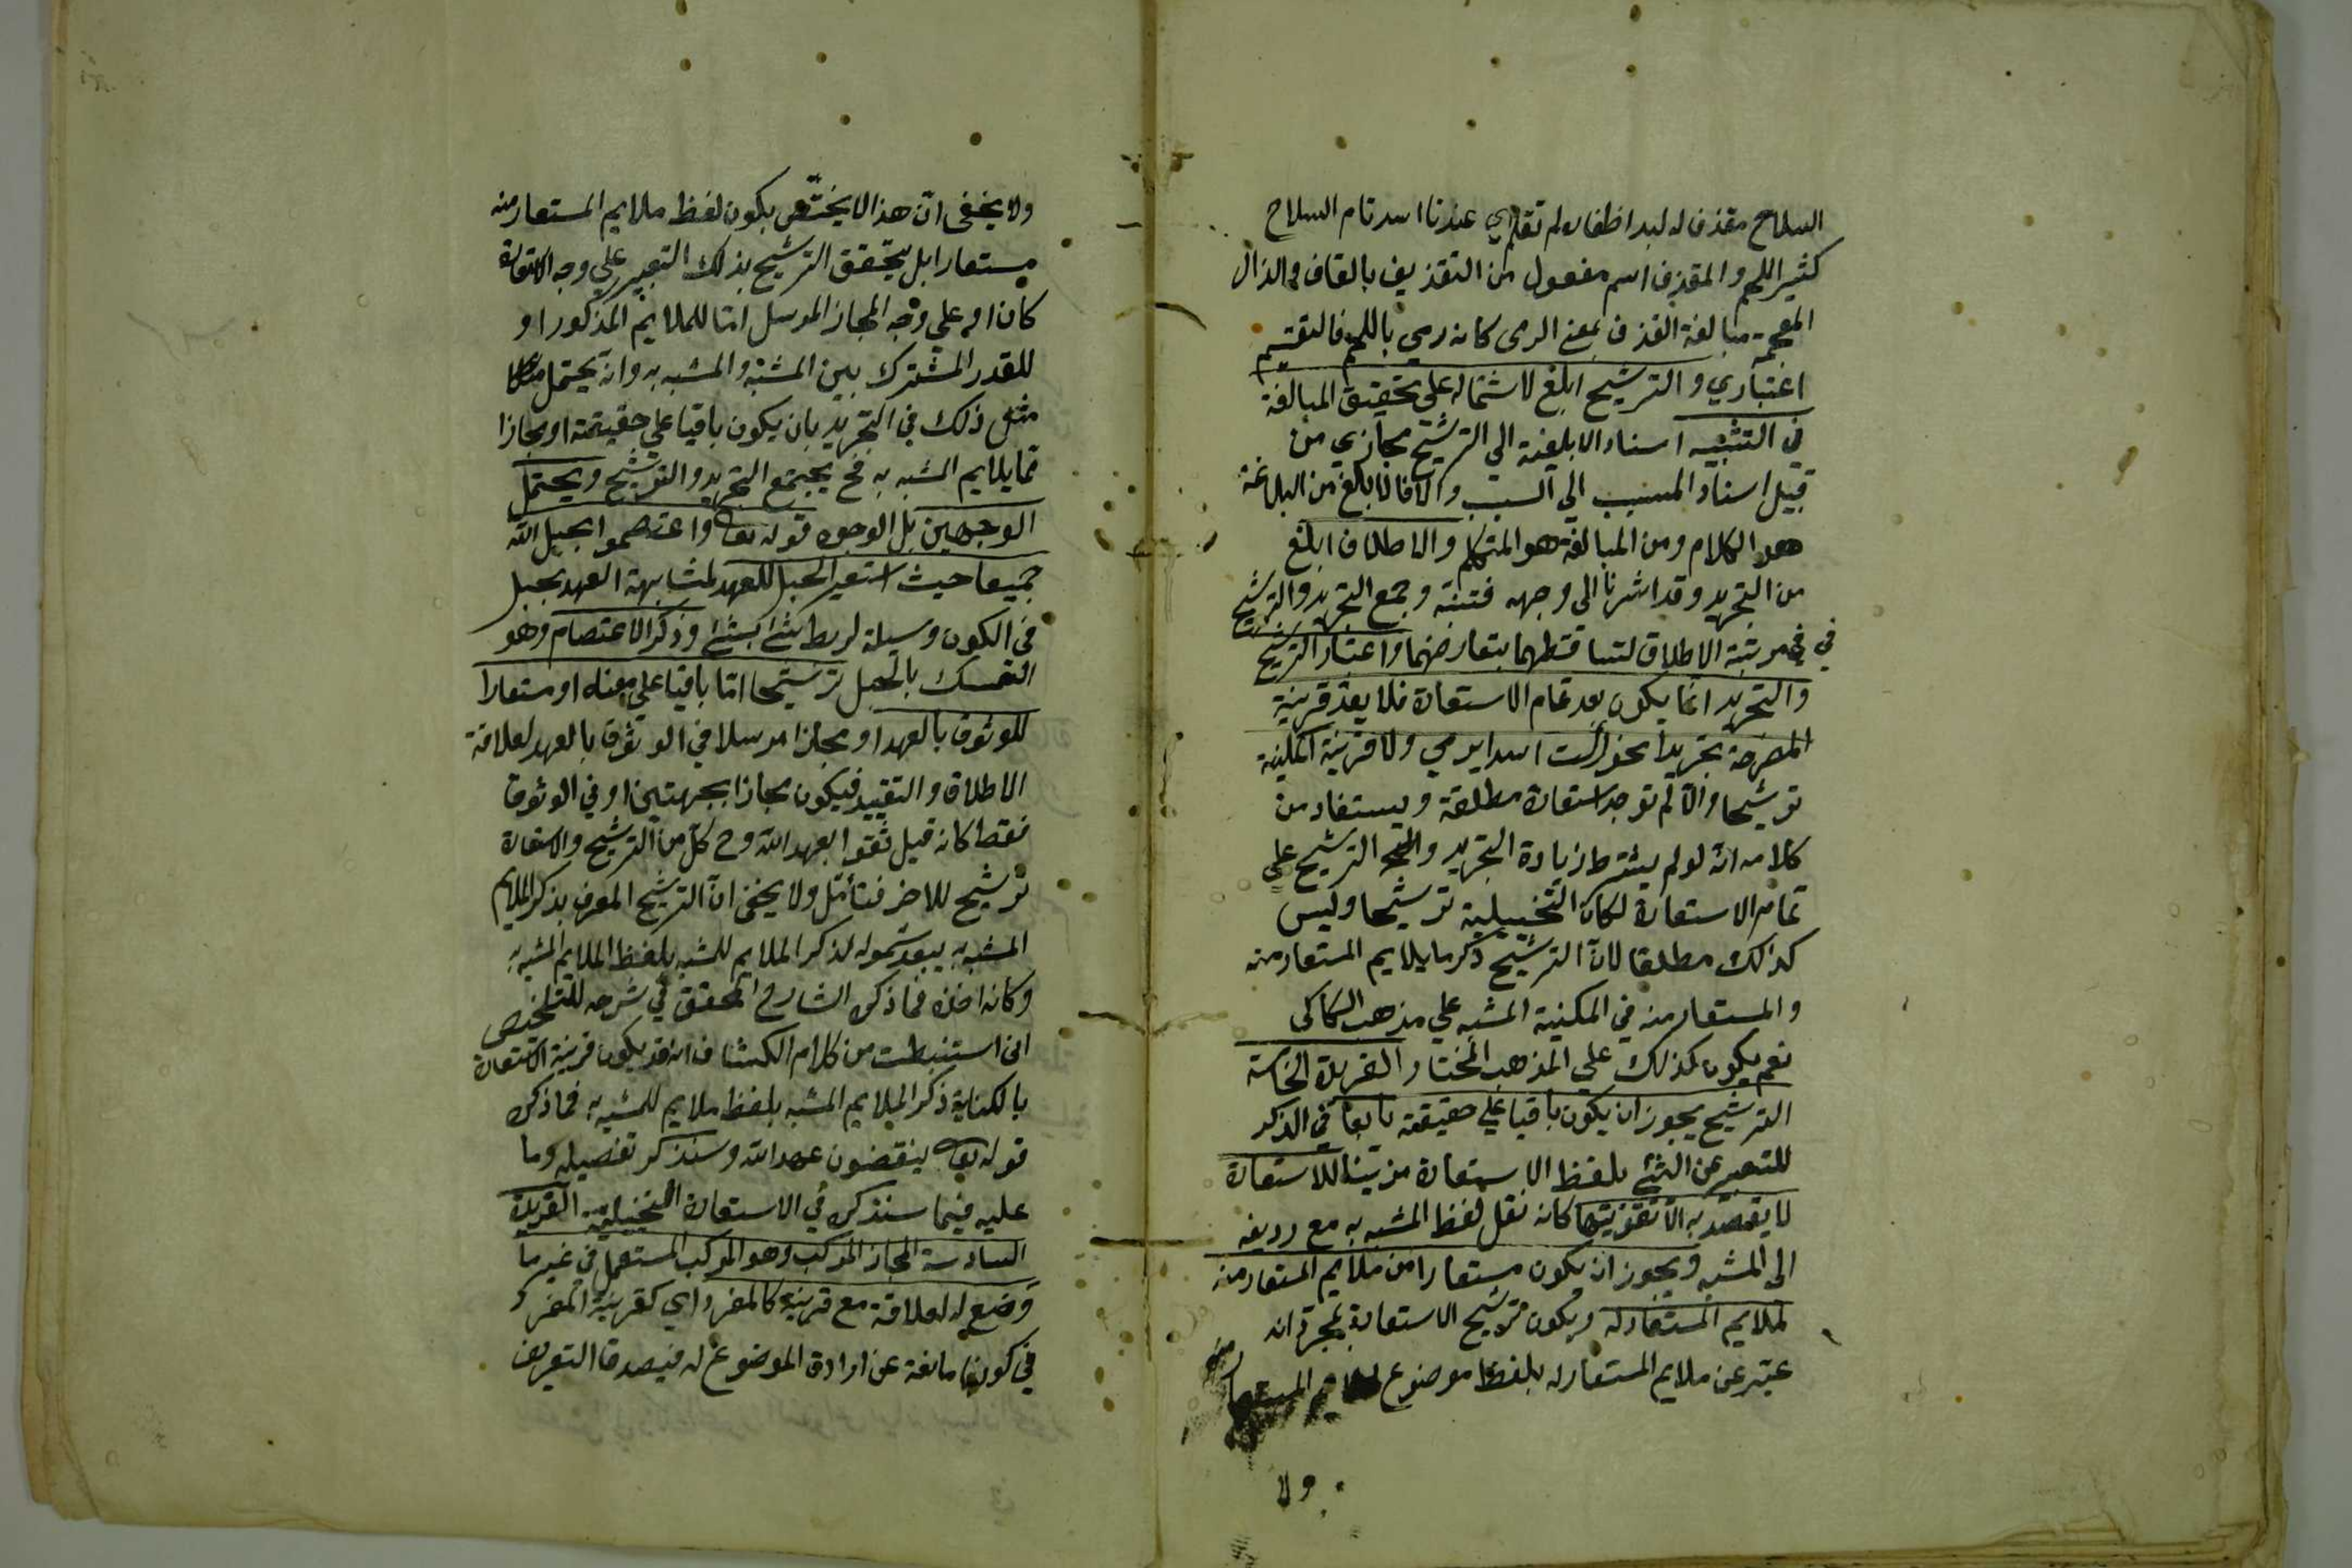 السلاح مقذف له لبد اظفاره لم تقلم اي عندنا اسد تام السلاح
كثير اللحم والمقذف اسم مفعول من التقذيف بالقاف والذال
المعجمة مبالغة القذف بمعنى الرمى كانه رمي باللحم فالتقسيم
اعتباري والترشيح ابلغ لاشتماله على تحقيق المبالغة
في التشبيه اسناد الابلغية الي الترشيح مجازي من
قبيل اسناد المسبب الى السبب والا فالابلغ من البلاغة
هو الكلام ومن المبالغة هو المتكلم والاطلاق ابلغ
من التجريد وقد اشرنا الى وجهه فتنبه وجمع التجريد والترشيح
في مرتبة الاطلاق لتساقطهما بتعارضهما واعتبار الترشيح
والتجريد انما يكون بعد تمام الاستعارة فلا يعد قرينة
المصرحة تجريدا نحو رأيت اسدا يرمي ولا قرينة المكنية
ترشيحا والا لم توجد استعارة مطلقة ويستفاد من
كلامه انه لو لم يشترط زيادة التجريد والترشيح على
تمام الاستعارة لكان التخييلية ترشيحا وليس
كذالك مطلقا لان الترشيح ذكر ما يلايم المستعار منه
والمستعار منه في المكنية المشبه علي مذهب السكاكى
نعم يكون كذلك علي المذهب المختار الفريدة الخامسة
الترشيح يجوز ان يكون باقيا علي حقيقته تابعا في الذكر
للتعبير عن الشئ بلفظ الاستعارة مزيتنا للاستعارة
لا يقصد به الا تقويتها كانه نقل لفظ المشبه به مع رديفه
الى المشبه ويجوز ان يكون مستعارا من ملايم المستعار منه
لملايم المستعار له ويكون ترشيح الاستعارة بمجرد انه
عبر عن ملايم المستعار له بلفظ موضوع لملايم المستعار منه
ولا
ولا يخفى ان هذا لا يختص بكون لفظ ملايم المستعار منه
مستعارا بل يتحقق الترشيح بذلك التعبير علي وجه الاستعارة
كان او علي وجه المجاز المرسل اما للملايم المذكور او
للقدر المشترك بين المشبه والمشبه به وانه يحتمل
مثل ذلك في التجريد بان يكون باقيا علي حقيقته او مجازا
مما يلايم المشبه به فح يجتمع التجريد والترشيح ويحتمل
الوجهين بل الوجوه قوله تعالى واعتصموا بحبل الله
جميعا حيث استعير الحبل للعهد لمشابهة العهد بحبل
في الكون وسيلة لربط شئ بشئ وذكر الاعتصام وهو
التمسك بالحبل ترشيحا اما باقيا علي معناه او مستعارا
للوثوق بالعهد او مجازا مرسلا في الوثوق بالعهد لعلاقة
الاطلاق والتقييد فيكون مجازا بجهتين او في الوثوق
فقط كانه قيل ثقوا بعهد الله وح كل من الترشيح والاستعارة
ترشيح للاخر فتأمل ولا يخفى ان الترشيح المعرف بذكر الملايم
المشبه به يبعد شموله لذكر الملايم للمشبه بلفظ الملايم المشبه به
وكانه اخذه مما ذكره الشارح المحقق في شرحه للتلخيص
انى استنبطت من كلام الكشاف انه قد يكون قرينة الاستعارة
بالكناية ذكر الملايم المشبه بلفظ ملايم للمشبه به مما ذكره
قوله تعالى ينقضون عهد الله وسنذكر تفصيله وما
عليه فيما سنذكره في الاستعارة التخييلية الفريدة
السادسة المجاز المركب وهو المركب المستعمل في غير ما
وضع له لعلاقة مع قرينة كالمفرد اي كقرينة المفرد
في كونها مانعة عن ارادة الموضوع له فيصدق التعريف